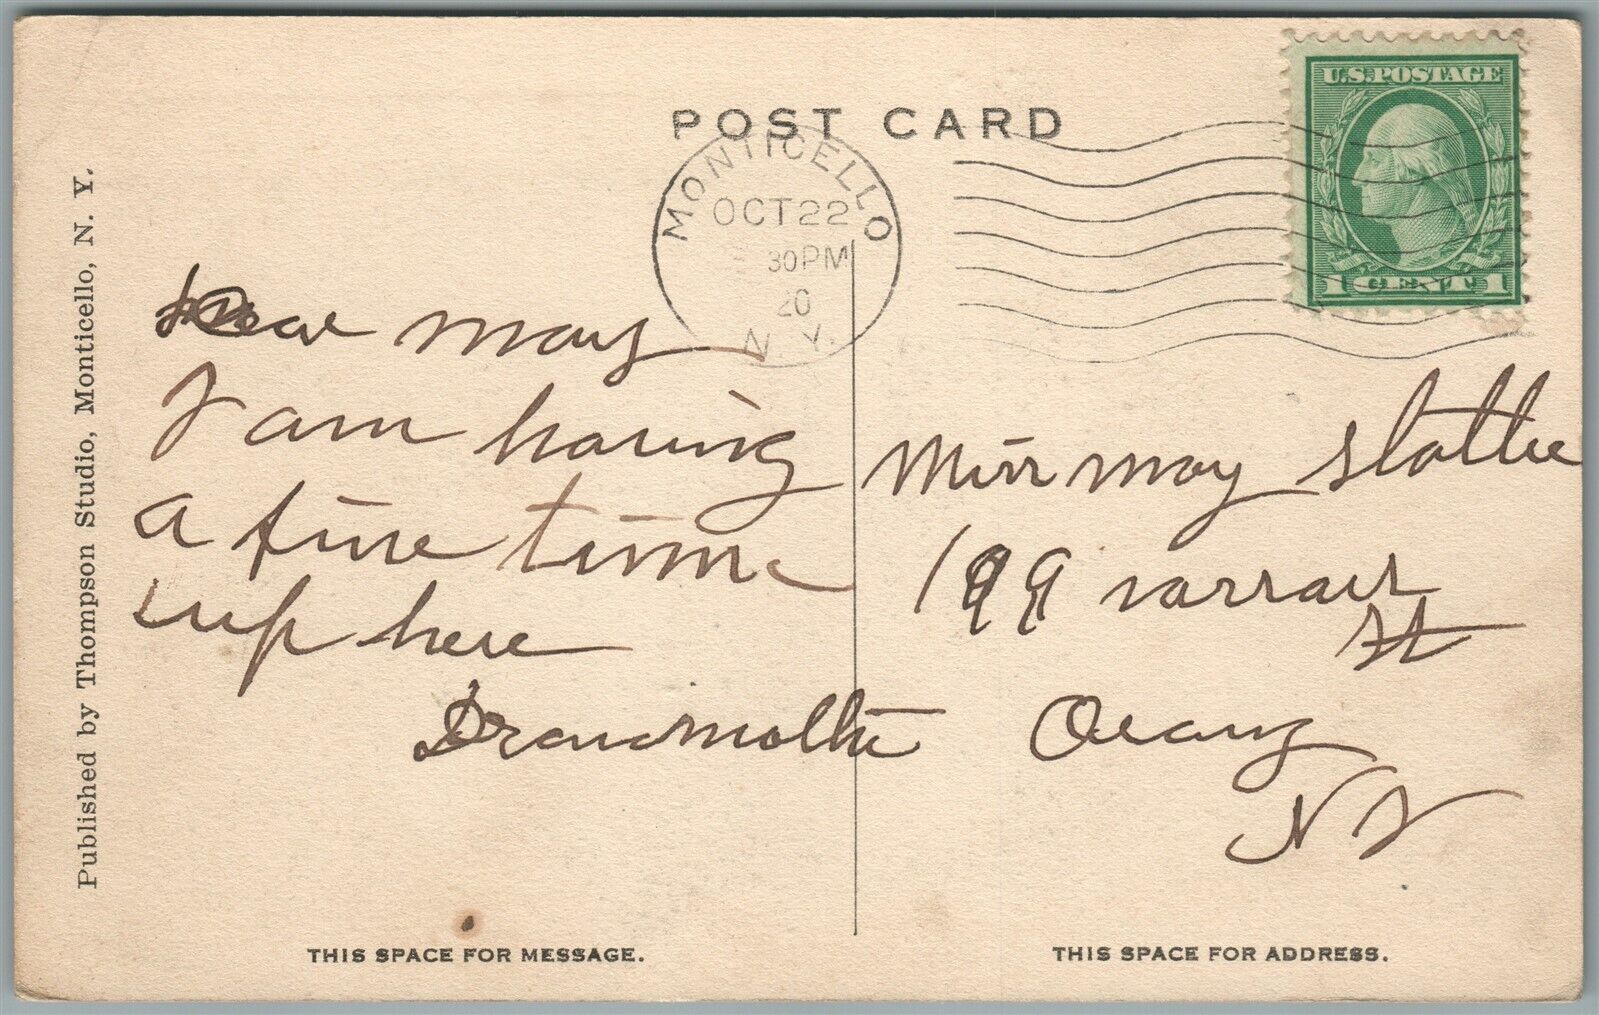 POST CARD
MONTICELLO
OCT 22
30 PM
20
N. Y.
U.S. POSTAGE
1 CENT 1
Published by Thompson Studio, Monticello, N. Y.
Dear May
I am having
a fine time
up here
Grandmother
Miss May
199
St
Orang
N J
THIS SPACE FOR MESSAGE.
THIS SPACE FOR ADDRESS.